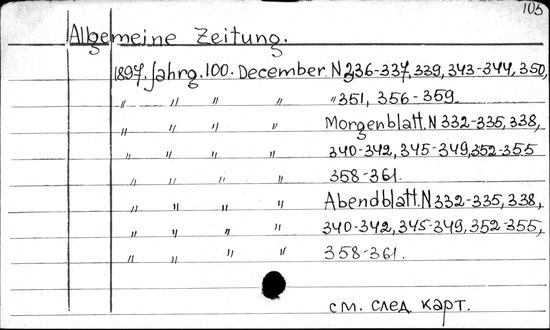 105
Allgemeine Zeitung.
1897. Jahrg. 100. December N 236-337, 339, 343-344, 350,
" " " " " 351, 356-359.
" " " " Morgenblatt. N 332-335, 338,
" " " " 340-342, 345-349, 352-355
" " " " 358-361.
" " " " Abendblatt. N 332-335, 338,
" " " " 340-342, 345-349, 352-355,
" " " " 358-361.
см. след карт.